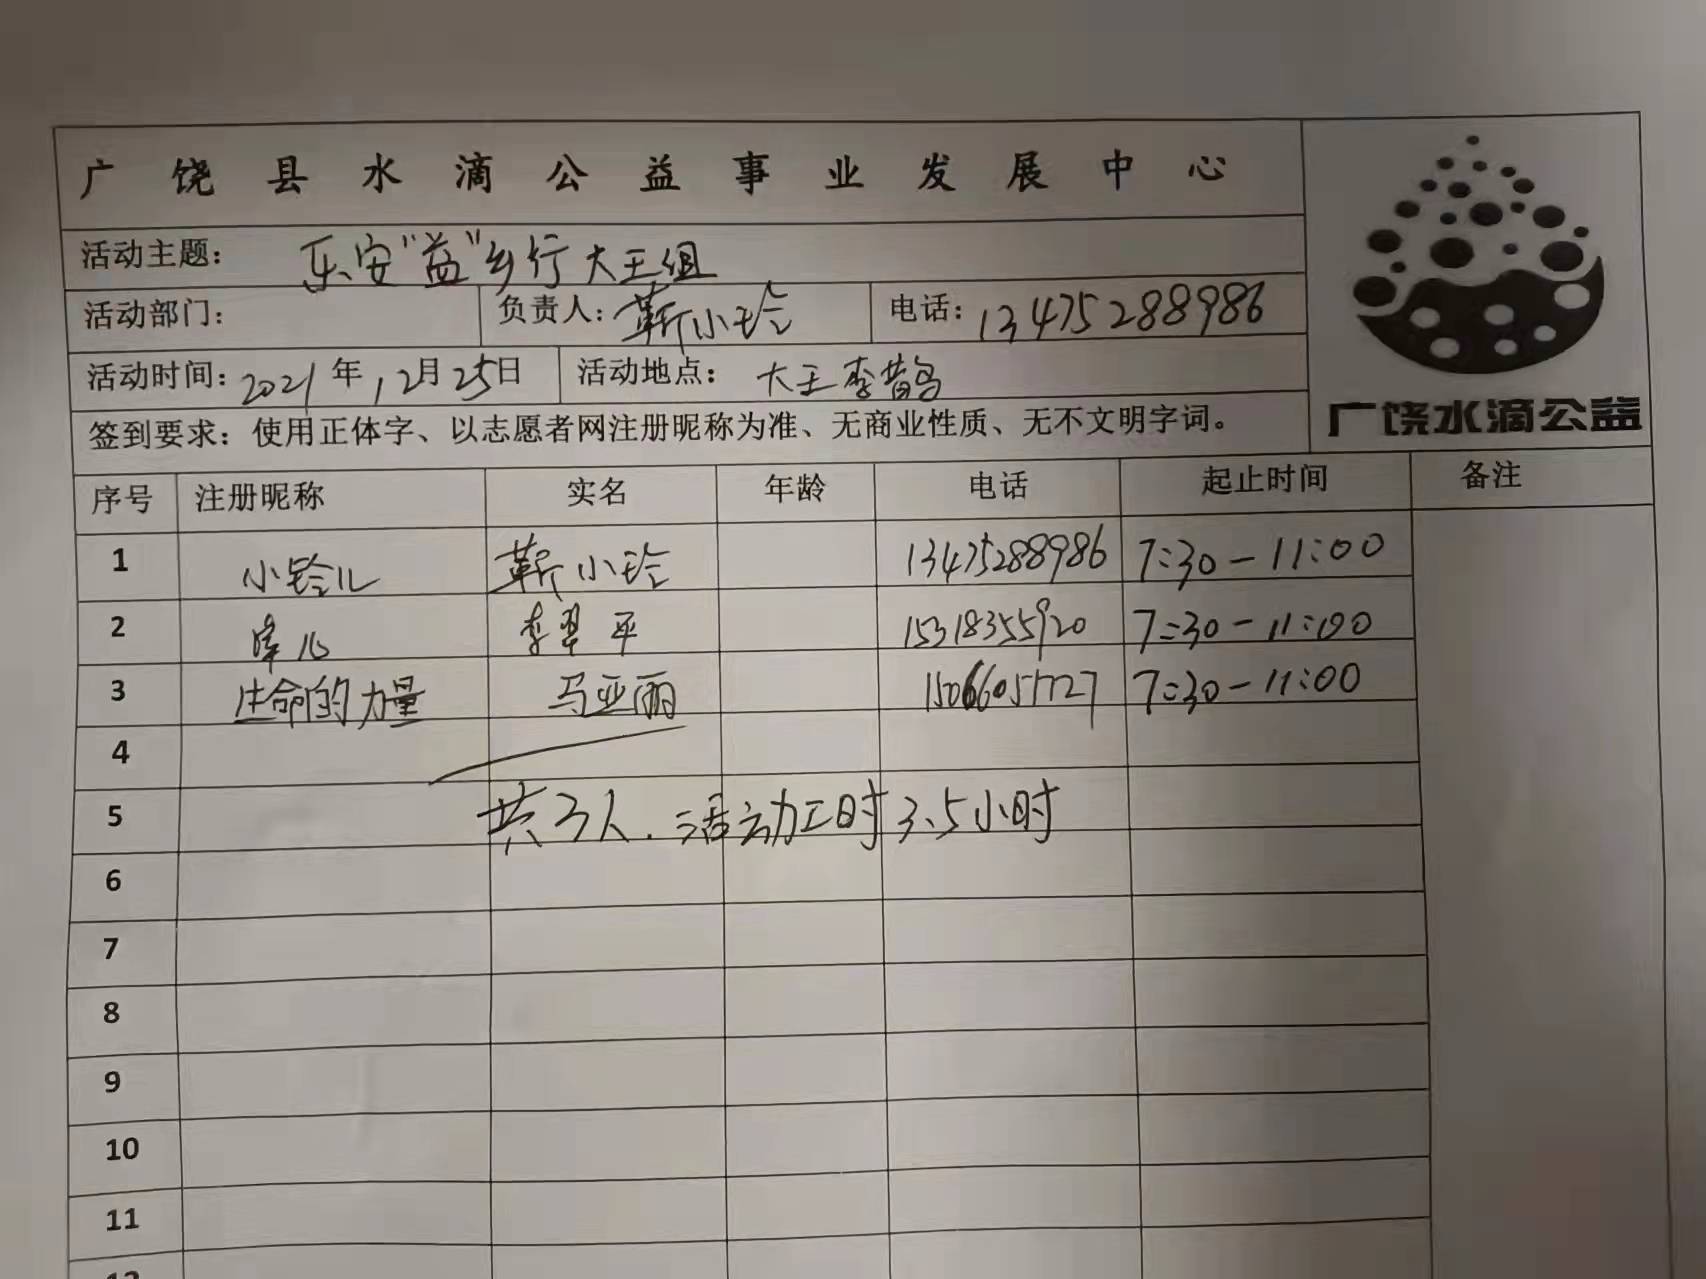 广饶县水滴公益事业发展中心
活动主题： 乐安"益"乡行大王组
活动部门： 负责人：靳小玲 电话：13475288986
活动时间：2021年12月25日 活动地点：大王李
广饶水滴公益
签到要求：使用正体字、以志愿者网注册昵称为准、无商业性质、无不文明字词。
序号 注册昵称 实名 年龄 电话 起止时间 备注
1 小铃儿 靳小玲 13475288986 7:30-11:00
2 李翠平 15318355920 7:30-11:00
3 生命的力量 马亚丽 15066051727 7:30-11:00
4
5 共3人.活动工时3.5小时
6
7
8
9
10
11